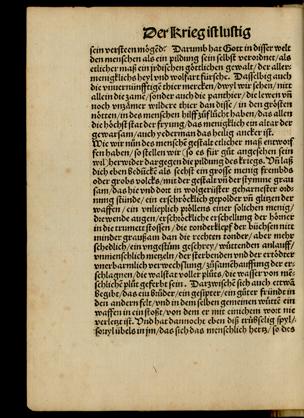 Der Krieg ist lustig
sein versteen mögẽd. Darumb hat Gott in disser welt
den menschen als ein pildung sein selbst verordnet/als
etlicher maß ein jrdischen göttlichen gewalt/der aller⸗
menigklichs heyl vnd wolfart fürsehe. Dasselbig auch
die vnuernunfftigẽ thier mercken/dwyl wir sehen/nitt
allein die zame/sonder auch die panthier/die lewen vñ
noch vnzämer wildere thier dan disse/in den grösten
nötten/in des menschen hilff züflücht haben/das allen
die höchst stat der fryung/das menigklich ein altar der
gewarsam/auch yederman das heilig ancker ist.
Wie wir nün des menschẽ gestalt etlicher maß entworf
fen haben/so stellen wir/so es für güt angesehen sein
wil/herwider dargegen die pildung des kriegs. Vñ laß
dich eben bedückẽ als sehest ein groß menig frembds
oder grobs volcks/mit der gestalt vñ der stymme grau
sam/das hie vnd dort in wolgerüster geharnester ord⸗
nung stünde/ein erschröcklich gepolder vñ glizen der
waffen/ein vnlieplich pöllens einer solichen menig/
die wende augen/erschröckliche erschellung der hörner
in die trumett stossen/die donderklepf der büchsen nitt
minder grausam dan die rechten tonder/aber mehr
schedlich/ein vngestüm geschrey/wüttenden anlauff/
vnmenschlich metzlen/der sterbenden vnd der ertödtẽ
vnerbarmlich verwechslung/züsamẽhauffung der er⸗
schlagnen/die walstat voller plüts/die wasser von mẽ
schlichẽ plüt geferbt sein. Darzwischẽ sich auch etwã
begibt/das ein brüder/ein gesipter/ein güter fründt in
den andern felt/vnd in dem selben gemeinen wütẽ ein
waffen in ein stoßt/von dem er mit einichem wort nie
verletzt ist. Vnd hat dannocht eben diß trübselig spyl/
souyl übels in jm/das sich das menschlich hertz/so des